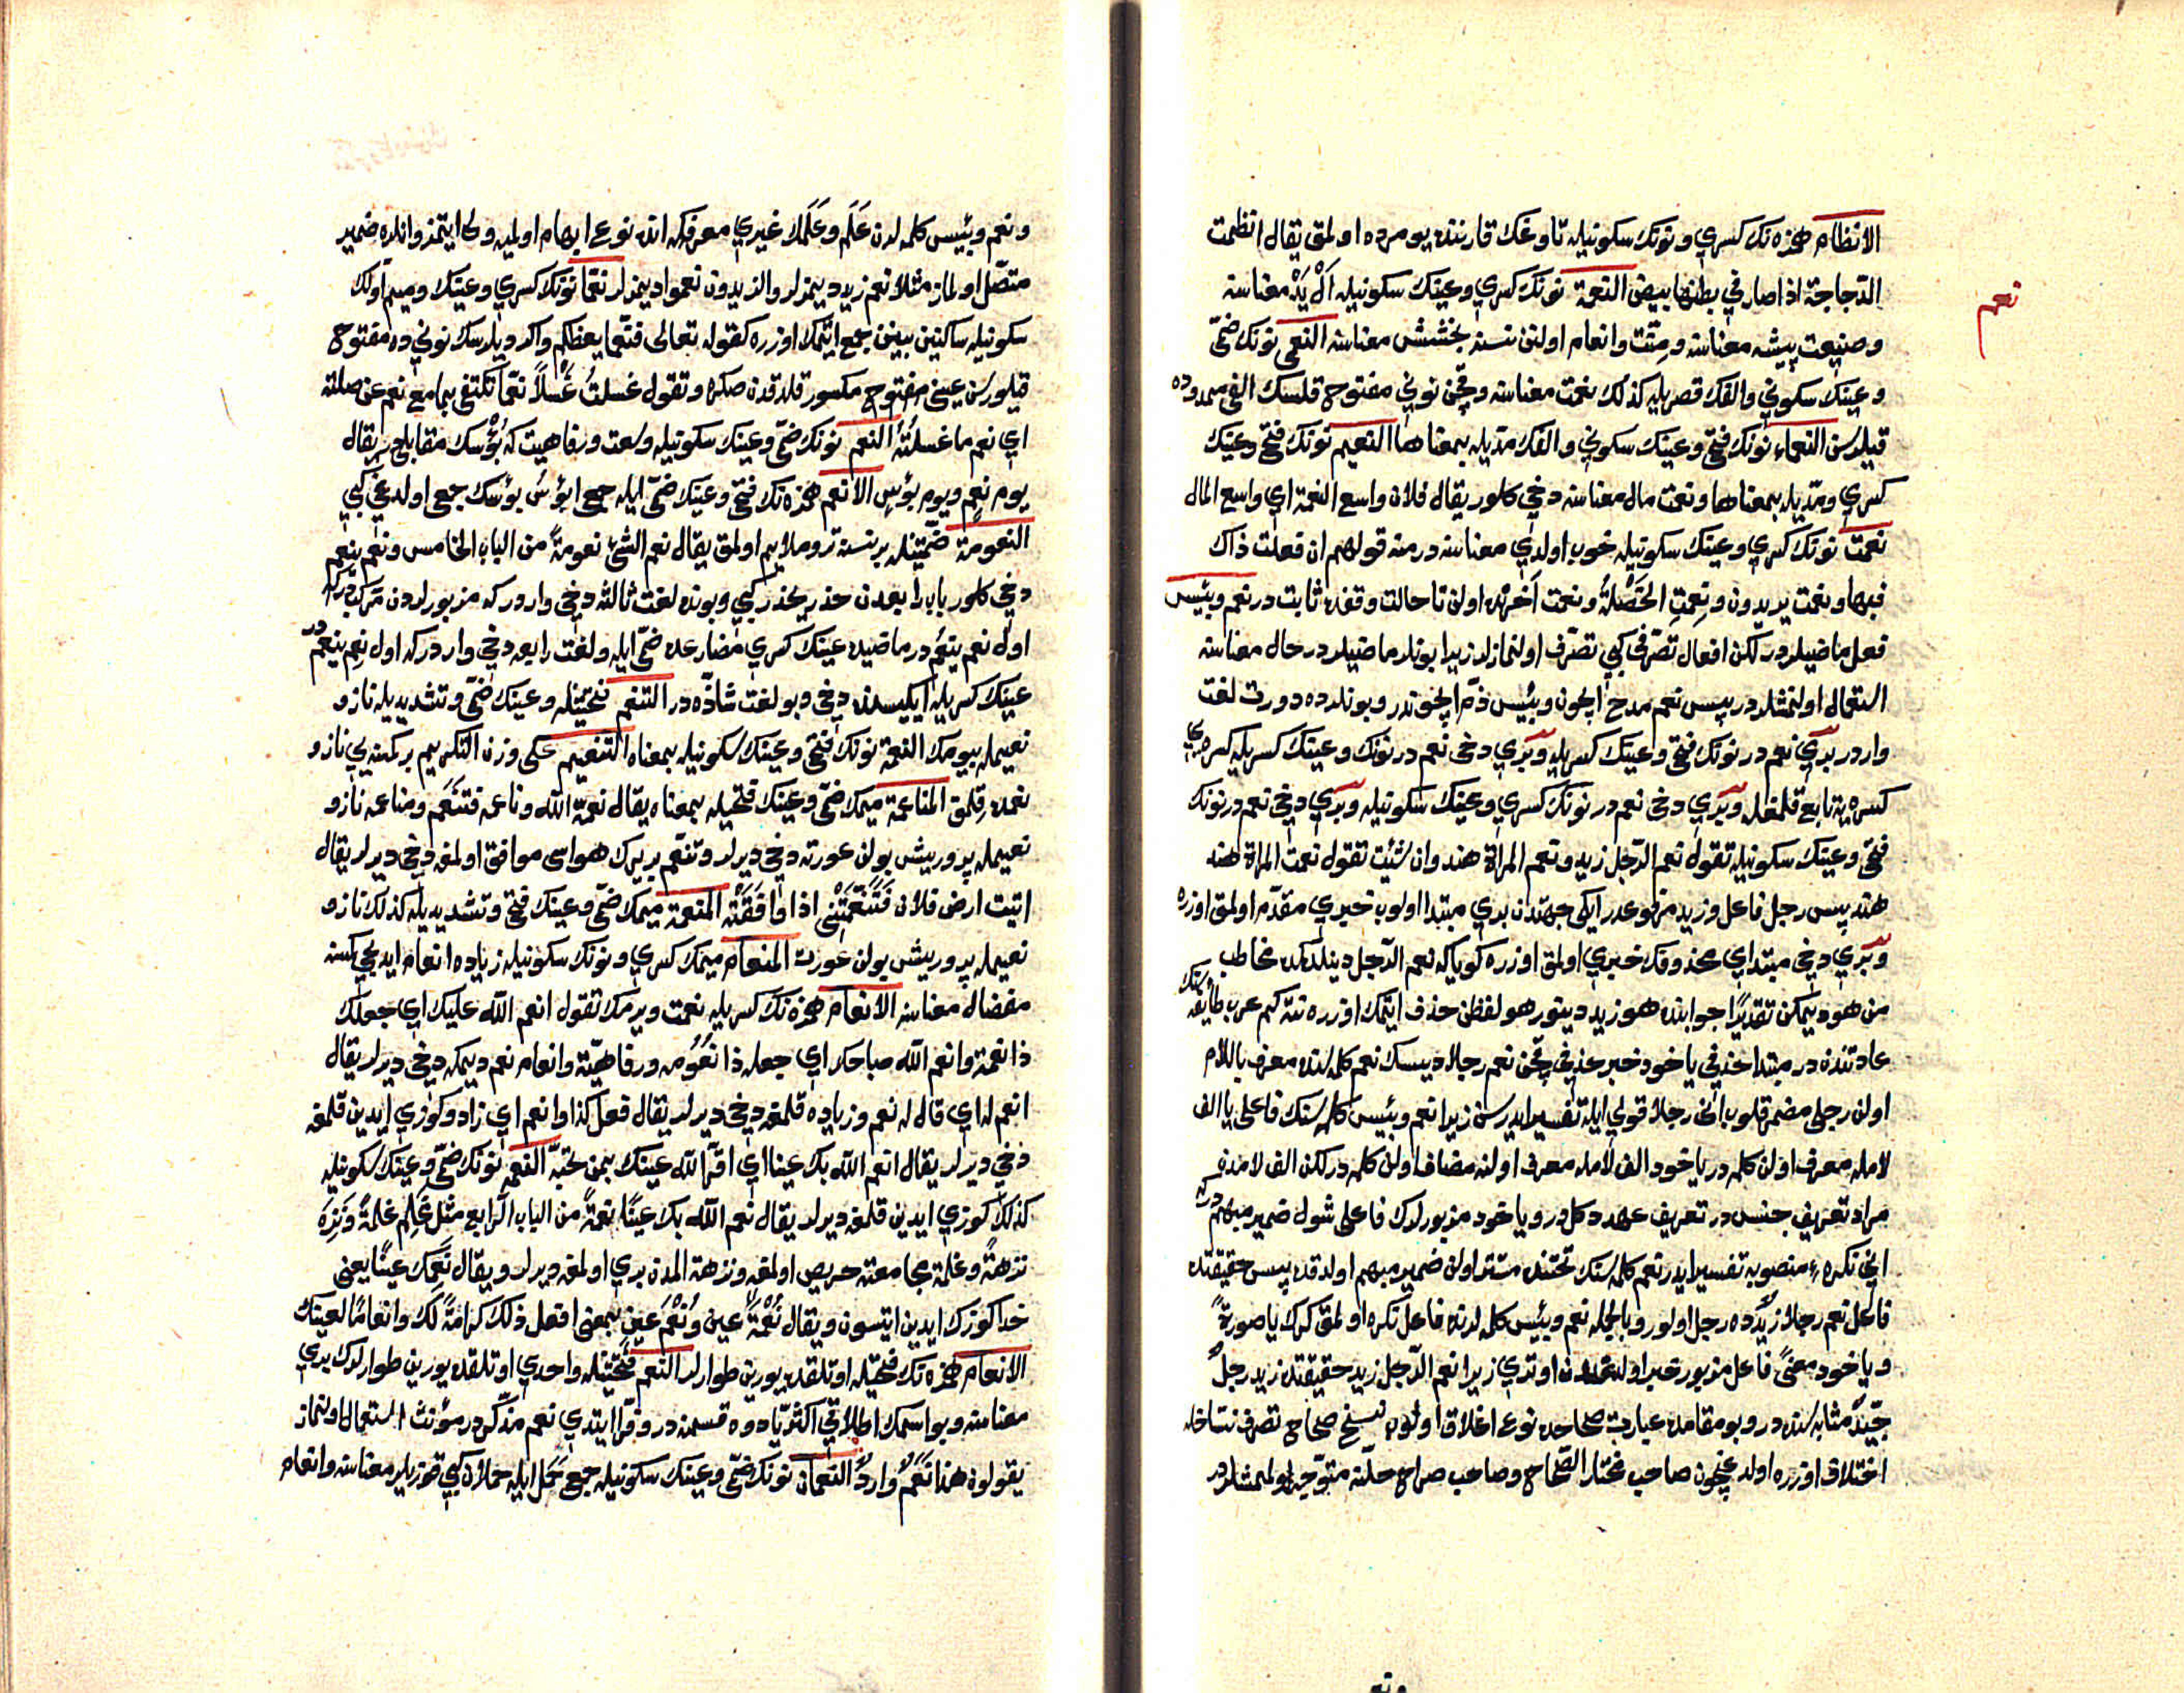 الانظام همزه‌نك كسري ونونك سكونيله تاوغك قارننده يومرده اولمق يقال انظمت
نعم
الدجاجة اذا صار في بطنها بيض النعمة نونك كسري وعينك سكونيله ال يد معناسنه
وصنيعت پيشه معناسنه ومنّت وانعام اولنن نسنه بخشش معناسنه النعمى نونك ضمّي
وعينك سكوني والفك قصريله كذلك نعمت معناسنه وقچن نوني مفتوح قلسك الفى ممدوده
قيلورسن النعماء نونك فتحي وعينك سكوني والفك مدّيله بمعناها النعيم نونك فتحي وعينك
كسري ومدّيله بمعناها ونعمت مال معناسنه دخي كلور يقال فلان واسع النعمة اي واسع المال
نعمت نونك كسري وعينك سكونيله خوب اولدي معناسنه در منه قولهم ان فعلت ذاك
فبها ونعمت يريدون ونعمت الخصلة ونعمت آخرنده اولن تا حالت وقفده ثابت در نعم وبئيس
فعل ماضيلردر لكن افعال تصرّفى كبي تصرّف اولنمازلر زيرا بونلر ماضيلردر حال معناسنه
استعمال اولنمشلردر پس نعم مدح ايچون وبئيس ذمّ ايچوندر وبونلرده دورت لغت
واردر بري نعم در نونك فتحي وعينك كسريله وبري دخي نعم در نونك وعينك كسريله كسره‌يي
كسره‌يه تابع قلمغله وبري دخي نعم در نونك كسري وعينك سكونيله وبري دخي نعم در نونك
فتحي وعينك سكونيله تقول نعم الرّجل زيد ونعم المرأة هند وان شئت تقول نعمت المرأة هند
هند پس رجل فاعل وزيد مرفوعدر ايكى جهتدن بري مبتدا اولوب خبري مقدّم اولمق اوزره
وبري دخي مبتداي محذوفك خبري اولمق اوزره كويا كه نعم الرّجل دينلدكده مخاطب
من هو ديمكن تقديرًا جوابنده هو زيد دينور هو لفظن حذف ايتمك اوزره نته كم عرب طائفه‌سنك
عادتنده در مبتدا حذفي ياخود خبر حذفي قچن نعم رجلا ديسك نعم كلمه‌سنده معرف باللام
اولن رجلى مضمر قلوب انى رجلا قولي ايله تفسير ايدرسن زيرا نعم وبئيس كلمه‌سنك فاعلى يا الف
لامله معرف اولن كلمه در ياخود الف لامله معرف اولنه مضاف اولن كلمه در لكن الف لامدن
مراد تعريف جنس در تعريف عهد دكلدر وياخود مزبورلرك فاعلى شول ضمير مبهم دركه
انى نكره منصوبه تفسير ايدر نعم كلمه‌سنك تحتنده مستتر اولن ضمير مبهم اولدقده پس حقيقتده
فاعل نعم رجلا زيدٌ ده رجل اولور وبالجمله نعم وبئيس كلمه لرنده فاعل نكره اولمق كرك يا صورةً
وياخود معنًى فاعل مزبور خبر اولدن اوتري زيرا نعم الرّجل زيد حقيقتده زيد رجلٌ
جيّد مثابه‌سنده در وبو مقامده عبارت صحاحده نوع اغلاق اولوب نسخ صحاح تصرف نساخله
اختلاف اوزره اولدغيچون صاحب مختار الصّحاح وصاحب صراح حلّنه متوجّه اولمشلردر
ونعم وبئيس كلمه لرن علم وعلمك غيري معرفه كه انده نوع ابهام اولميه ولى ايتمز وانلره ضمير
متصّل اولماز مثلا نعم زيد ديمزلر والزيدون نعموا ديمزلر نعمّا نونك كسري وعينك وميم اولك
سكونيله ساكنين بينن جمع ايتمك اوزره كقوله تعالى فنعمّا يعظكم واكر ديلرسك نوني ده مفتوح
قيلورسن عينى مفتوح مكسور قلدقدن صكره وتقول غسلتُ غسلاً نعمّا تكتفي بما مع نعم عن صلته
اي نعم ما غسلتُه النعم نونك ضمّي وعينك سكونيله وسعت ورفاهيت كه بؤسك مقابليدر يقال
يوم نعم ويوم بؤس الانعم همزه‌نك فتحي وعينك ضمّي ايله جمعى ابؤس بؤسك جمعى اولدغى كبي
النعومة ضمّتينله بر نسنه تر وملايم اولمق يقال نعم الشئ نعومةً من الباب الخامس ونعم ينعم
دخي كلور باب رابعدن حذر يحذر كبي وبونده لغت ثالثه دخي واردركه مزبورلردن مركب دركه
اول نعم ينعم در ماضيده عينك كسري مضارعده ضمّي ايله ولغت رابعه دخي واردركه اول نعم ينعم در
عينك كسريله ايكيسنده دخي وبو لغت شاذّه در التنعّم فتحتينله وعينك ضمّي وتشديديله ناز و
نعيمله بيومك النعمة نونك فتحي وعينك سكونيله بمعناه التنعيم على وزن التكريم بر كمسه‌يي ناز و
نعمده قلمق المناعمة ميمك ضمّي وعينك فتحيله بمعناه يقال نعمه الله وناعمه فتنعّم ومناعمه ناز و
نعيمله پرورش بولن عورته دخي ديرلر وتنعّم بر يرك هواسى موافق اولمغه دخي ديرلر يقال
اتيت ارض فلان فتنعّمتني اذا وافقته المنعمة ميمك ضمّي وعينك فتحي وتشديديله كذلك ناز و
نعيمله پرورش بولن عورت المنعام ميمك كسري ونونك سكونيله زياده انعام ايديجي كمسه
مفضال معناسنه الانعام همزه‌نك كسريله نعمت ويرمك تقول انعم الله عليك اي جعلك
ذا نعمة وانعم الله صباحك اي جعله ذا نعومه ورفاهيّة وانعام نعم ديمكه دخي ديرلر يقال
انعم له اي قال له نعم وزياده قلمغه دخي ديرلر يقال فعل كذا وانعم اي زاد وكوزي ايدين قلمغه
دخي ديرلر يقال انعم الله بك عينا اي اقرّ الله عينك بمن تحبّه النعم نونك ضمّي وعينك سكونيله
كذلك كوزي ايدين قلمغه ديرلر يقال نعم الله بك عينًا نعمةً من الباب الرّابع مثل غلم غلمةً ونزه
نزهةً وغلمة مجامعته حريص اولمغه ونزهة المدن بري اولمغه ديرلر ويقال نعمك عينًا يعني
خدا كوزك ايدين ايتسون ويقال نعمة عين ونعم عين بمعنى افعل ذلك كرامةً لك وانعامًا لعينك
الانعام همزه‌نك فتحيله اوتلقده يورين طوارلر النعم فتحتينله واحدي اوتلقده يورين طوارلرك بري
معناسنه وبو اسمك اطلاقي اكثريّا دوه قسمنه در وفرّا ايتدي نعم مذكّردر مؤنث استعمال اولنماز
يقولون هذا نعم وارد النعمان نونك ضمّي وعينك سكونيله جمعى حمل ايله حملان كبي قوزيلر معناسنه وانعام